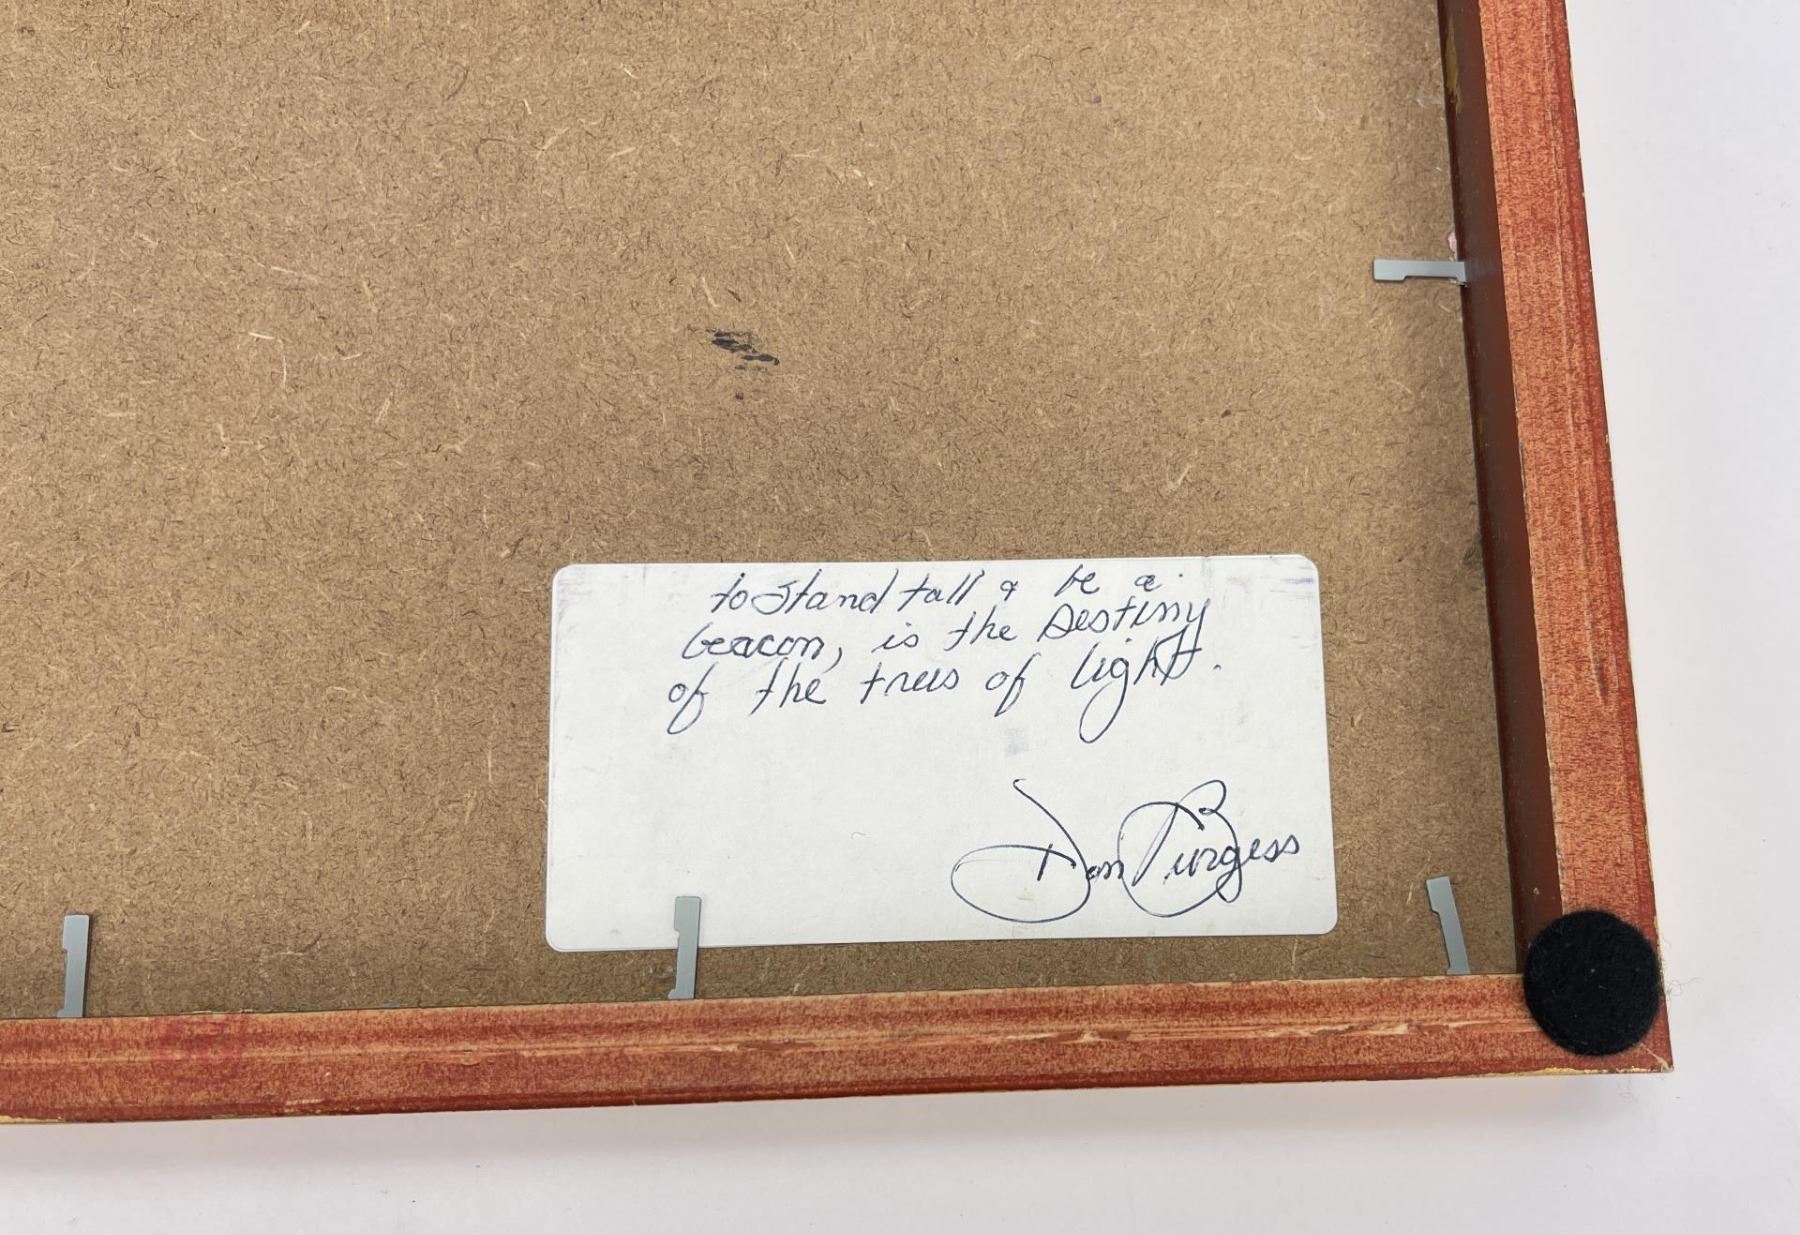 to stand tall & be a
beacon, is the destiny
of the trees of light.
Don Burgess